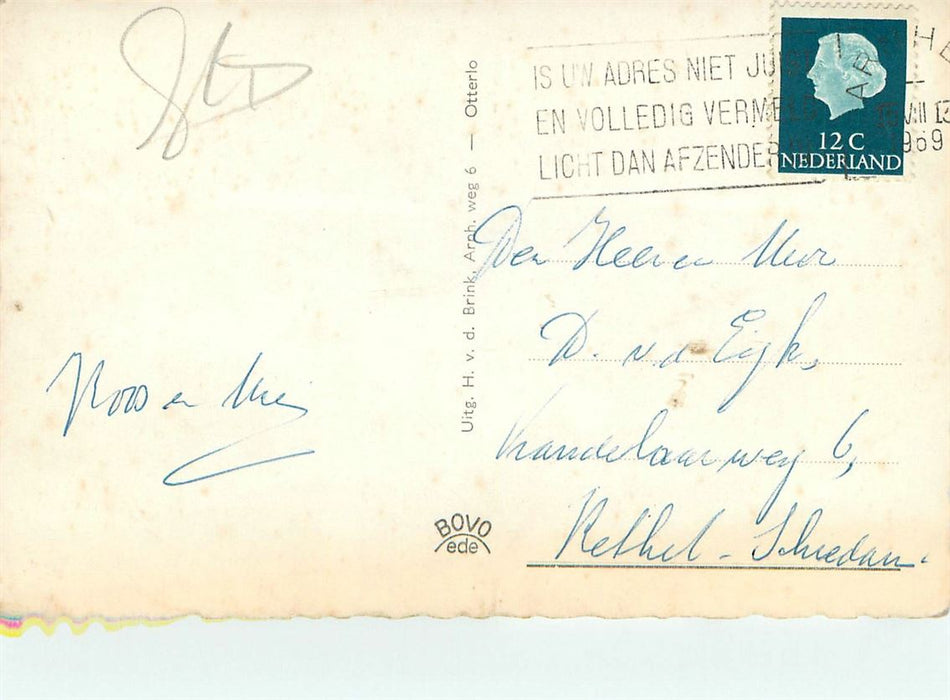 IS UW ADRES NIET JU
EN VOLLEDIG VERMELD
LICHT DAN AFZENDER
ARNHE
VIII 13
1969
12 C
NEDERLAND
Uitg. H. v. d. Brink, Arnh. weg 6 — Otterlo
Den Heer en Mevr
D. v. d. Eijk,
Kandelaarweg 6,
Kethel - Schiedam.
Roos en
BOVO
ede